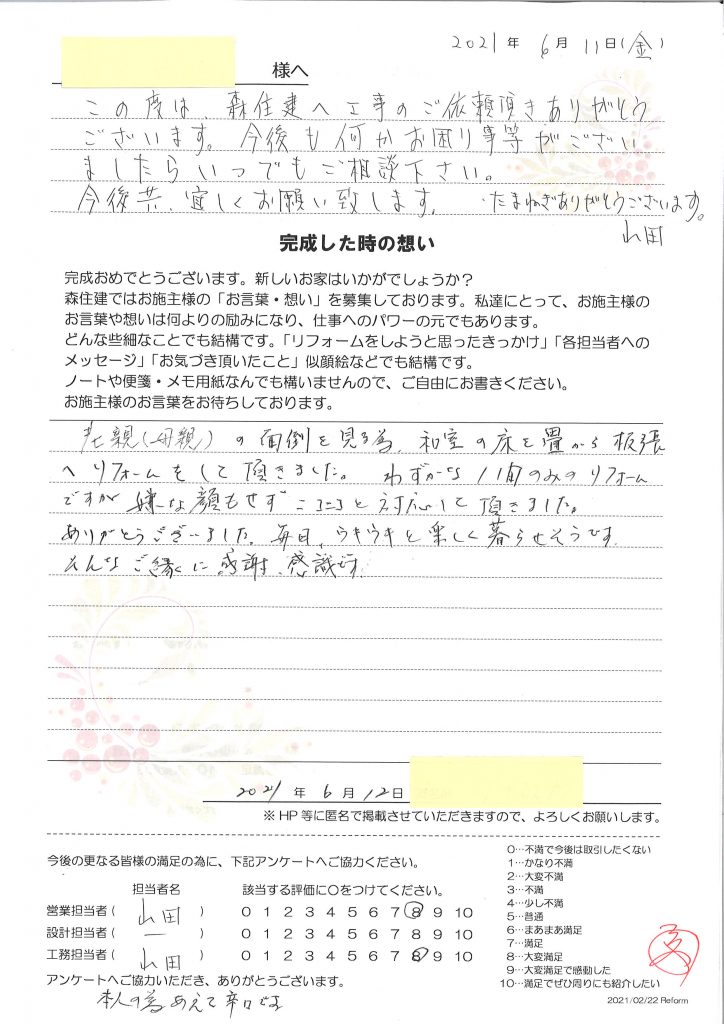 2021年 6月 11日(金)
様へ
この度は、森住建へ工事のご依頼頂きありがとう
ございます。今後も何かお困り事等がござい
ましたらいつでもご相談下さい。
今後共、宜しくお願い致します。 ・たまねぎありがとうございます。
山田
完成した時の想い
完成おめでとうございます。新しいお家はいかがでしょうか？
森住建ではお施主様の「お言葉・想い」を募集しております。私達にとって、お施主様の
お言葉や想いは何よりの励みになり、仕事へのパワーの元でもあります。
どんな些細なことでも結構です。「リフォームをしようと思ったきっかけ」「各担当者への
メッセージ」「お気づき頂いたこと」似顔絵などでも結構です。
ノートや便箋・メモ用紙なんでも構いませんので、ご自由にお書きください。
お施主様のお言葉をお待ちしております。
老親(母親)の面倒を見る為、和室の床を畳から板張
へリフォームをして頂きました。わずかな1日のみのリフォーム
ですが嫌な顔もせずニコニコと対応して頂きました。
ありがとうございました。毎日、ウキウキと楽しく暮らせそうです。
そんなご縁に感謝、感識です
2021年 6月 12日
※HP等に匿名で掲載させていただきますので、よろしくお願いします。
今後の更なる皆様の満足の為に、下記アンケートへご協力ください。
担当者名 該当する評価に○をつけてください。
営業担当者( 山田 ) 0 1 2 3 4 5 6 7 8 9 10
設計担当者( ー ) 0 1 2 3 4 5 6 7 8 9 10
工務担当者( 山田 ) 0 1 2 3 4 5 6 7 8 9 10
アンケートへご協力いただき、ありがとうございます。
本人の為あえて辛口です
0…不満で今後は取引したくない
1…かなり不満
2…大変不満
3…不満
4…少し不満
5…普通
6…まあまあ満足
7…満足
8…大変満足
9…大変満足で感動した
10…満足でぜひ周りにも紹介したい
2021/02/22 Reform